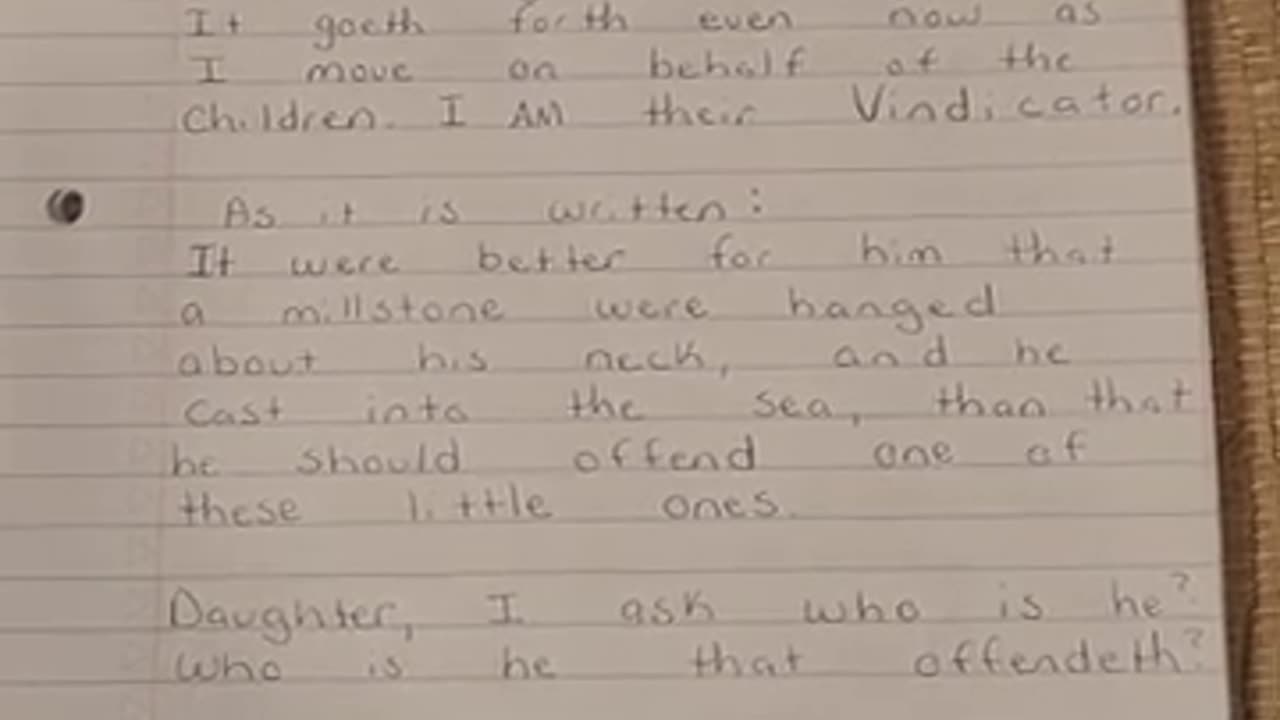 It goeth forth even now as
I move on behalf of the
Children. I AM their Vindicator.
As it is written:
It were better for him that
a millstone were hanged
about his neck, and he
cast into the sea, than that
he should offend one of
these little ones.
Daughter, I ask who is he?
Who is he that offendeth?